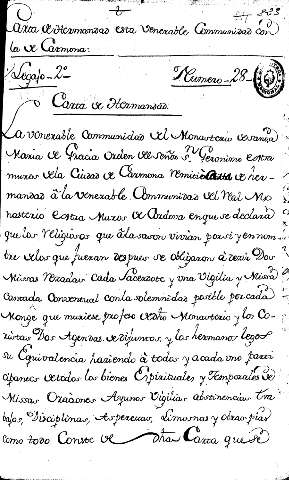 Carta de Hermandad esta Venerable Communidad con
la de Carmona.
Legajo 2º Numero 28
Carta de Hermandad.
La venerable Communidad del Monasterio de santa
Maria de Gracia Orden de señor Sn Geronimo extra
muros de la Ciudad de Carmona remicio Carta de her-
mandad â la Venerable Communidad del Real Mo-
nasterio extra Muros de Cordova en que se declara
que los Religiosos que â la sason vivian por si y en nom-
bre de los que fueran despues se obligaron â decir Dos
Missas Rezadas Cada Sacerdote y una Vigilia y Missa
Cantada Conventual con la solemnidad posible por cada
Monge que muriese profeso de dho Monasterio y los Co-
ristas Dos Agendas de difuntos, y los hermanos legos
su Equivalencia haciendo â todos y a cada uno parti-
cipantes de todos los bienes Espirituales y Temporales de
Missas Oraciones Ayunos Vigilias abstinencias Tra-
bajos, Disciplinas, Asperezas, Limosnas y obras pias
como todo Consta de dha Carta que se